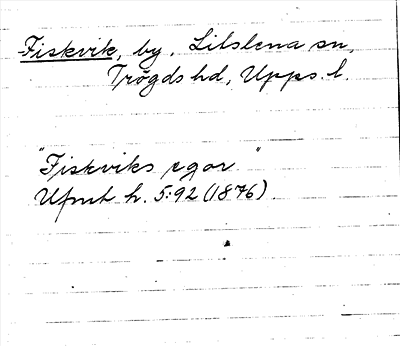 Fiskvik, by, Litslena sn,
Trögds hd, Upps. l.
"Fiskviks egor"
Ufmt h. 5:92 (1876).